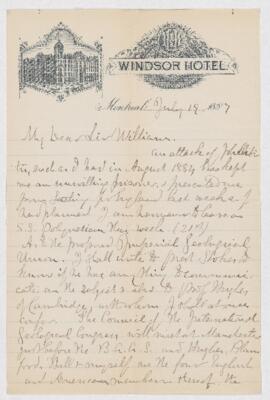 THE
WINDSOR HOTEL
Montreal July 19 1887
My Dear Sir William.
an attack of phlebi-
tis, such as I had in August 1884 has kept
me an unwilling prisoner & prevented me
from for England last week as I
had planned. I am hoping to leave on
S.S. Polynesian this week (21st)
As to the proposed Imperial Geological
Union. I shall write to Prof Stokes &
know if he has any thing to communi-
cate on the subject & also to Prof Hughes
of Cambridge, with whom I shall at once
confer. The Council of the International
Geological Congress will meet at Manchester
just before the B.A.A.S. and Hughes, Blan-
ford, Hull & myself are the four English
and American members thereof, the